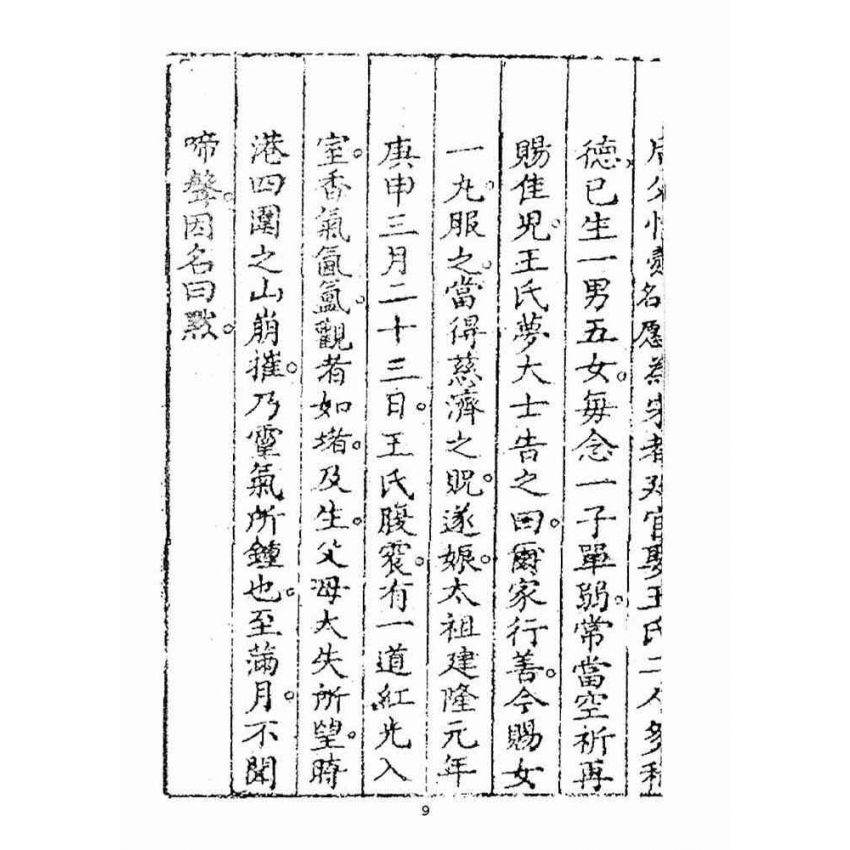 父惟名愿為宋都巡官娶王氏二人多積
德已生一男五女。每念一子單弱。常當空祈再
賜佳兒。王氏夢大士告之曰。爾家行善。今賜女
一丸。服之。當得慈濟之貺。遂娠。太祖建隆元年
庚申三月二十三日。王氏腹震。有一道紅光入
室。香氣氤氳。觀者如堵。及生。父母大失所望。時
港四圍之山崩摧。乃靈氣所鍾也。至滿月。不聞
啼聲。因名曰默。
9